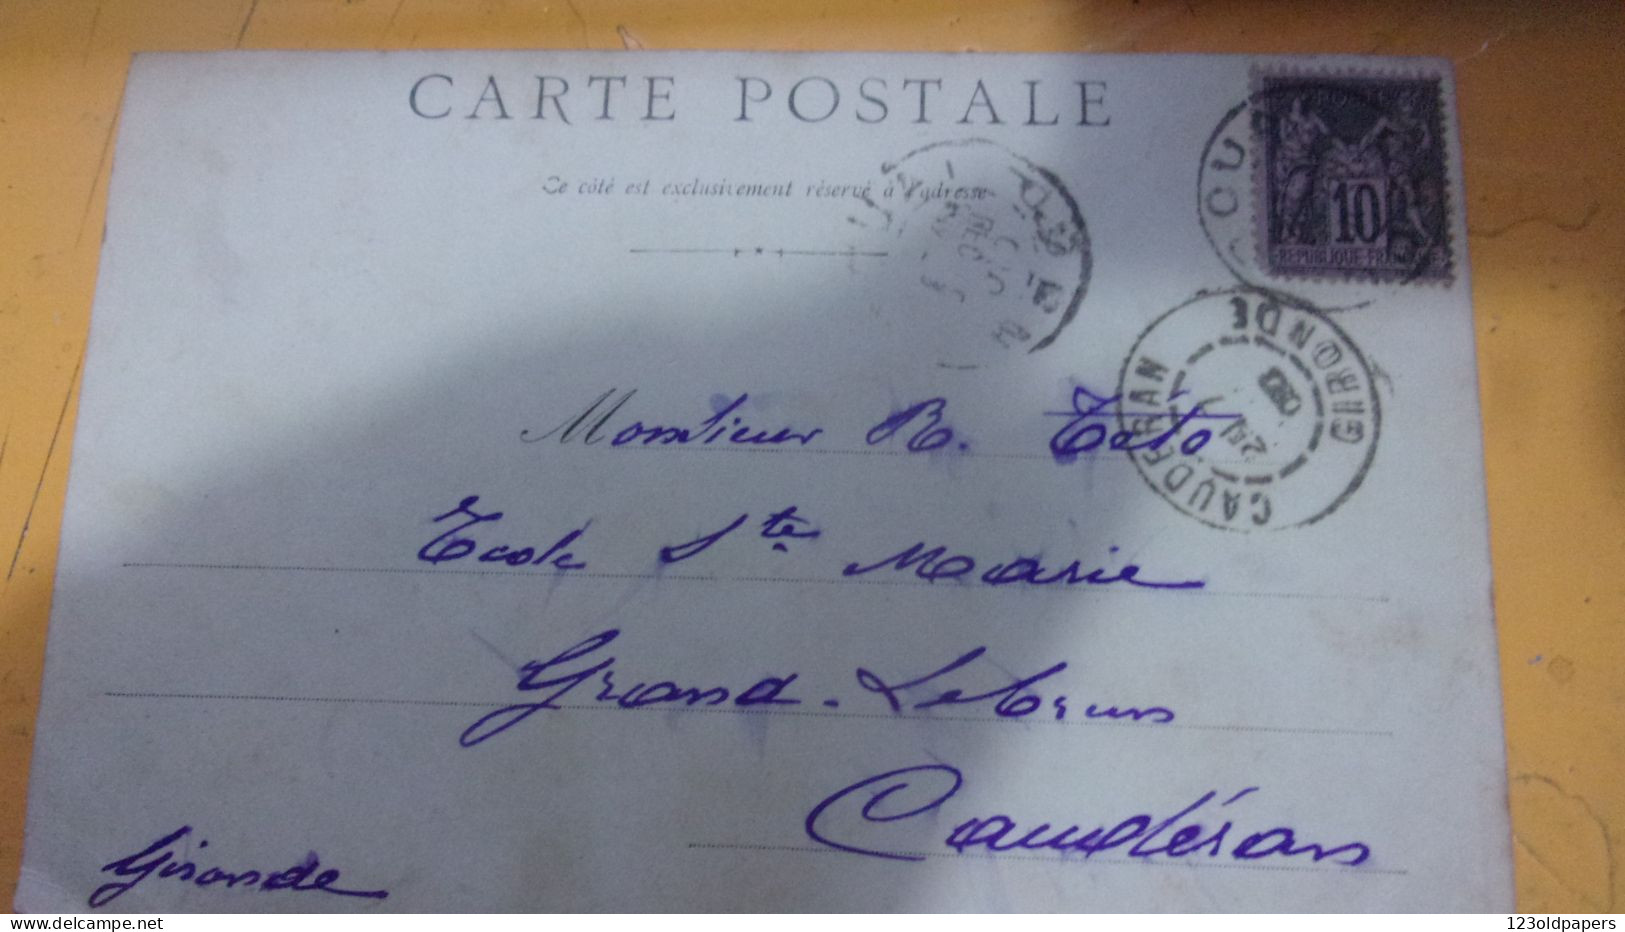 CARTE POSTALE
Ce côté est exclusivement réservé à l'adresse
POSTE
10
REPUBLIQUE FRANÇAISE
CAUDERAN
GIRONDE
Monsieur R.
Ecole Ste Marie
Grand-Lebrun
Caudéran
Gironde
delcampe.net
123oldpapers